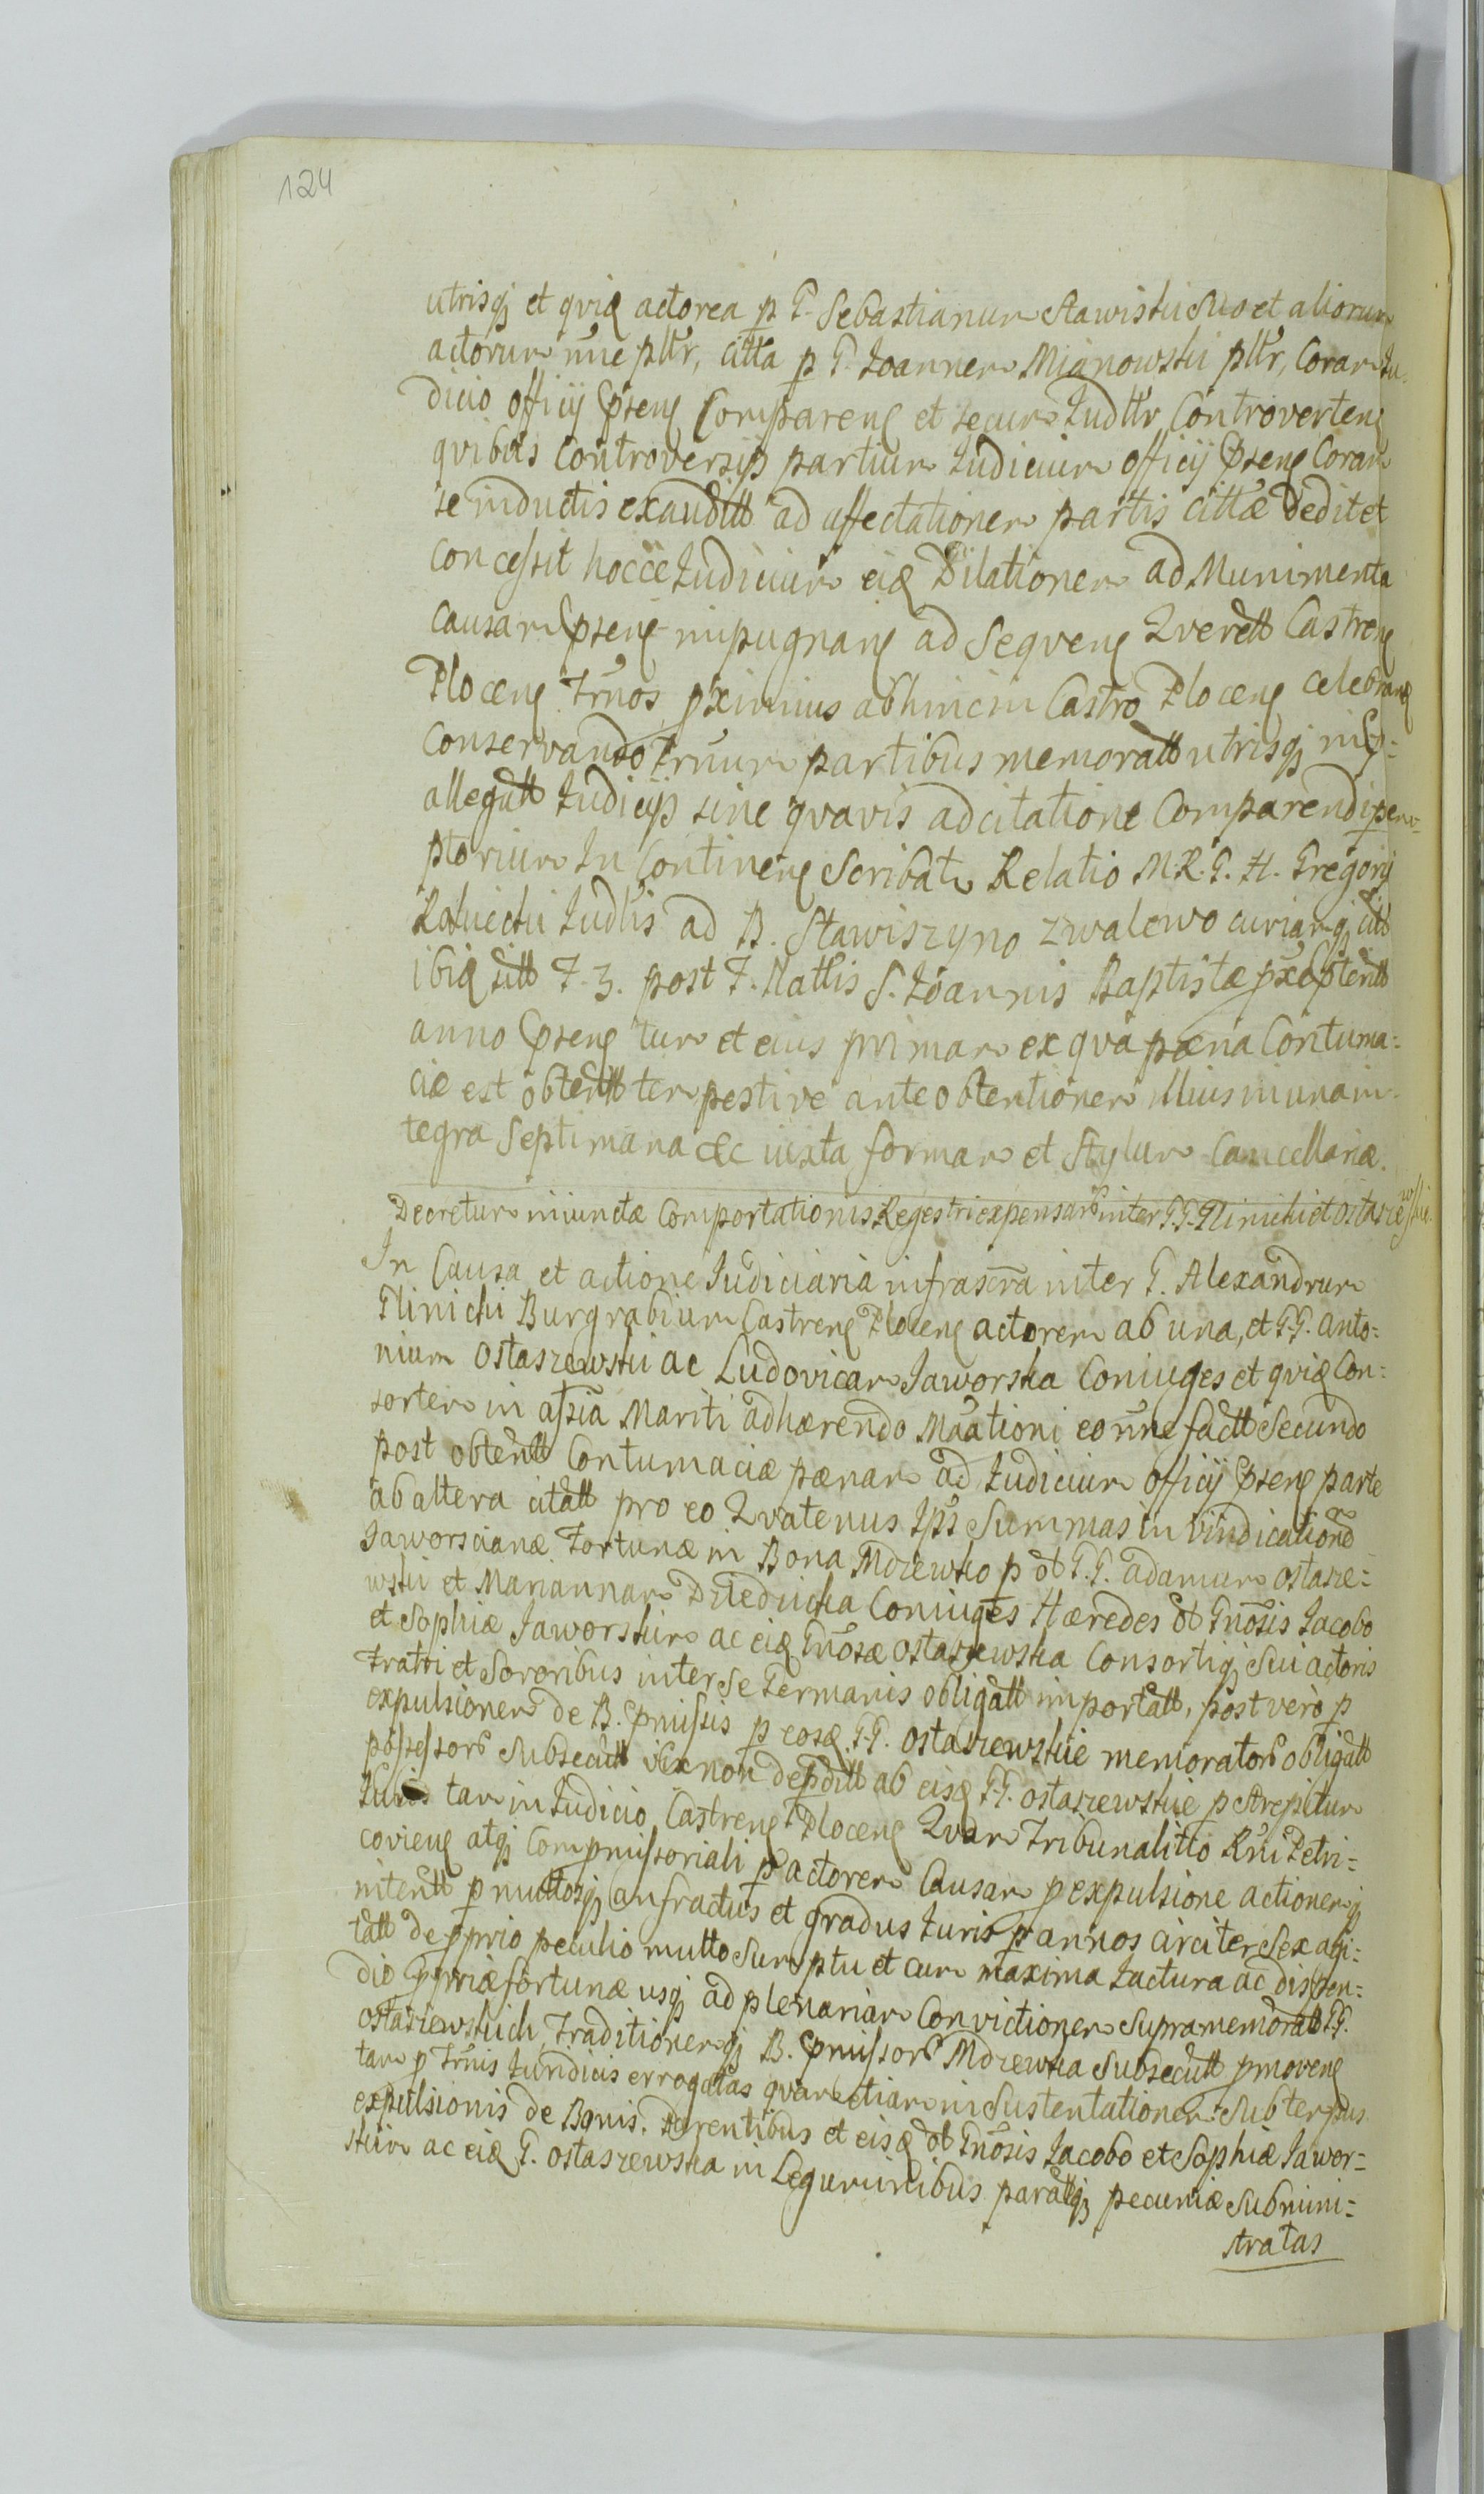 124
utrisq; et eiq actorea p G. Sebastianum Stawiski suo et aliorum
actorum nne pltr, citta p G. Joannem Mianowski pltr, Coram Ju-
dicio officij Pseng Compareng et secum Judltr Controverteng
quibus Controversijs partium Judicium officij Pseng Coram
se inductis exauditt ad affectationem partis cittæ dedit et
Concessit hocce Judicium eiq Dilationem ad Munimenta
Causam Pseng impugnang ad Sequeng Querell Castreng
Ploceng Trnos pximius abhinc in Castro Ploceng celebrang
Conservando Trnum partibus memoratt utrisq; in P-
allegatt Judicijs sine quavis adcitatione Comparendi perem-
ptorium In Contineng Scribat Relatio M.R. G. H. Gregorij
Judlis ad B. Stawiszyno Zwalewo curiamq; citt
ibiq sitt F. 3. post F. Nattis S. Joannis Baptistæ pxe Pteritt
anno Pseng tum et eius primam ex qua pæna Contuma:
ciæ est obtentt tempestive ante obtentionem illius in una in-
tegra Septimana &c iuxta formam et Stylum Cancellariæ.
Decretum iniunctæ Comportationis Regestri expensarum inter G.G. Plinicki et Ostaszewskie.
In Causa et actione Judiciaria infrascra inter G. Alexandrum
Plinicki Burgrabium Castreng Ploceng actorem ab una, et G.G. Anto:
nium Ostaszewski ac Ludovicam Jaworska Coniuges et quiq Con:
sortem in assia Mariti adhærendo Maationi eo nne factt Secundo
post obtentt Contumaciæ pænam ad Judicium officij Pseng parte
ab altera citatt pro eo Quatenus Ips Summas in vindicatione
Jaworscianæ Fortunæ in Bona Mdzewko p ot G.G. Adamum Ostasze:
wski et Mariannam Dziedzicka Coniuges Hæredes ot Gnosis Jacobo
et Sophiæ Jaworskim ac eiq Gnosæ Ostaszewska Consortiq; sui actoris
Fratri et Sororibus inter se Germanis obligatt importatt, post verò p
expulsionem de B. Pmissis p eosq G.G. Ostaszewskie memorator obligatt
possessor subsecutt vix non depditt ab eisq G.G. Ostaszewskie p strepitum
Juris tam in Judicio Castreng Ploceng Quam Tribunalitio Rni Petri:
covieng atq; Compmissoriali p actorem Causam p expulsione actionemq;
intentt p multosq; anfractus et gradus Juris p annos circiter sex agi:
tatt de pprio peculio multo sumptu et cum maxima Jactura ac dispen:
dio ppriæ fortunæ usq; ad plenariam Convictionem supramemoratt G.G.
Ostaszewskich, Traditionemq; B. Pmissor Mdzewka subsecutt pmoveng
tam p Trnis Juridicis errogatas quam etiam in Sustentationem sub tempus
expulsionis de Bonis. Parentibus et eisq ot Gnosis Jacobo et Sophiæ Jawor:
skim ac eiq G. Ostaszewska in Leguminibus paratq; pecuniæ Submini:
stratas